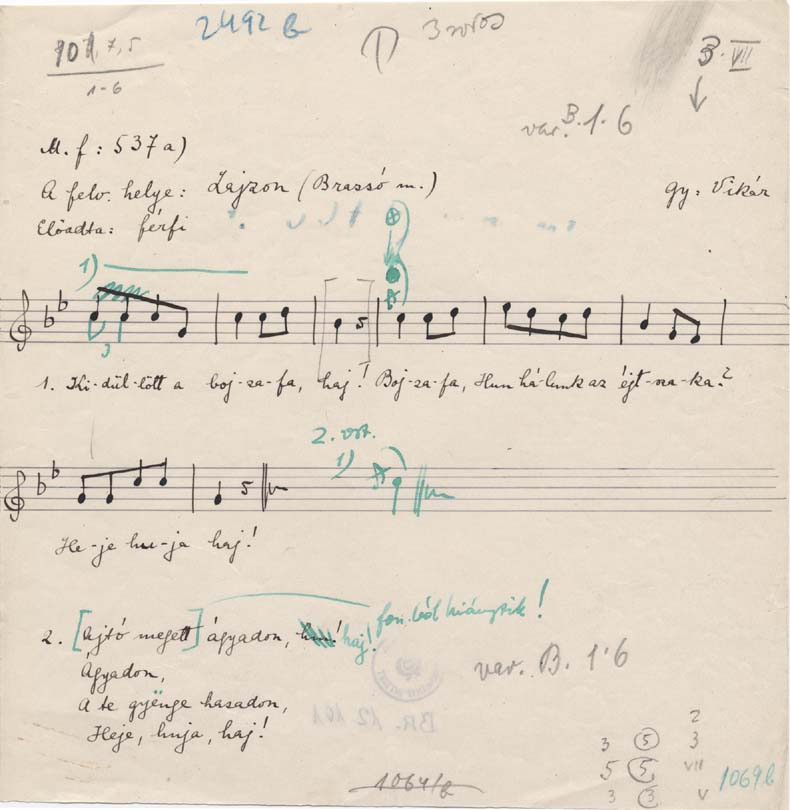 2492 b
101, 7, 5
1-6
3 soros
3. VII
var. B. 1. 6
M. f: 537a)
A felv. helye: Zajzon (Brassó m.)
gy: Vikár
Előadta: férfi
1)
1. Ki-dül-lött a boj-za-fa, haj! Boj-za-fa, Hun há-lunk az éjt-sza-ka?
2. vsz.
1)
He-je hu-ja haj!
2. [Ajtó megett] ágyadon, haj! fon. ból hiányzik!
Ágyadon,
A te gyënge hasadon,
Heje, huja, haj!
var. B. 1. 6
BR. 12 101
2
3 5 3
5 5 VII
3 3 V
1064/b
1069 b